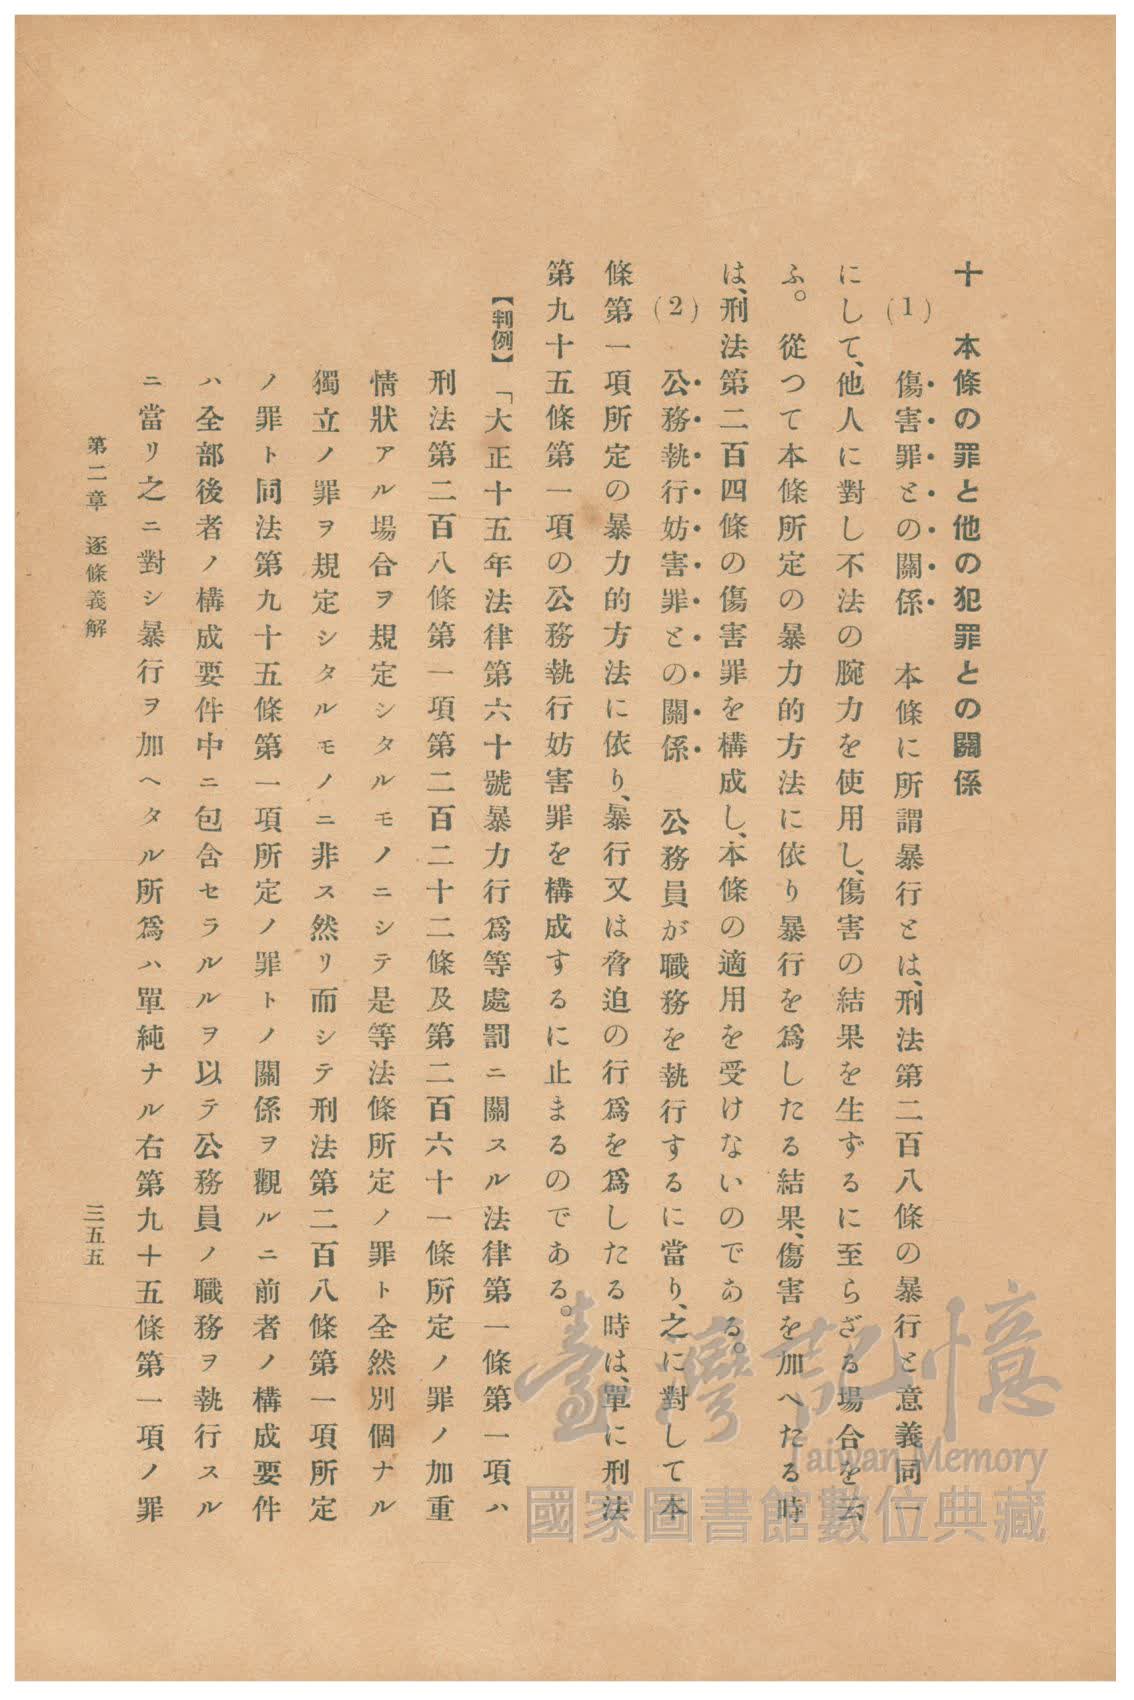 十　本條の罪と他の犯罪との關係
(1)　傷害罪との關係　本條に所謂暴行とは、刑法第二百八條の暴行と意義同一
にして、他人に對し不法の腕力を使用し、傷害の結果を生ずるに至らざる場合を云
ふ。從つて本條所定の暴力的方法に依り暴行を爲したる結果、傷害を加へたる時
は、刑法第二百四條の傷害罪を構成し、本條の適用を受けないのである。
(2)　公務執行妨害罪との關係　公務員が職務を執行するに當り、之に對して本
條第一項所定の暴力的方法に依り、暴行又は脅迫の行爲を爲したる時は、單に刑法
第九十五條第一項の公務執行妨害罪を構成するに止まるのである。
【判例】「大正十五年法律第六十號暴力行爲等處罰ニ關スル法律第一條第一項ハ
刑法第二百八條第一項第二百二十二條及第二百六十一條所定ノ罪ノ加重
情狀アル場合ヲ規定シタルモノニシテ是等法條所定ノ罪ト全然別個ナル
獨立ノ罪ヲ規定シタルモノニ非ス然リ而シテ刑法第二百八條第一項所定
ノ罪ト同法第九十五條第一項所定ノ罪トノ關係ヲ觀ルニ前者ノ構成要件
ハ全部後者ノ構成要件中ニ包含セラルルヲ以テ公務員ノ職務ヲ執行スル
ニ當リ之ニ對シ暴行ヲ加ヘタル所爲ハ單純ナル右第九十五條第一項ノ罪
第二章　逐條義解
三五五
臺灣記憶
Taiwan Memory
國家圖書館數位典藏